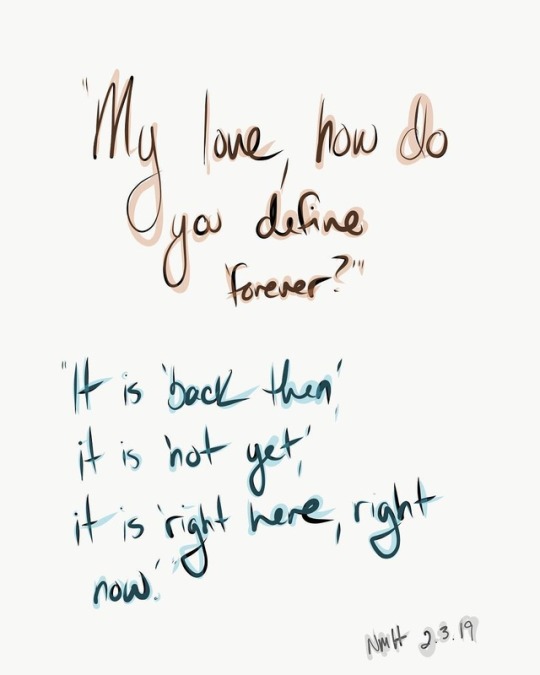 "My love, how do
you define
'forever?'"
"It is 'back then,'
it is 'not yet,'
it is 'right here, right
now.'"
NMH 2.3.19